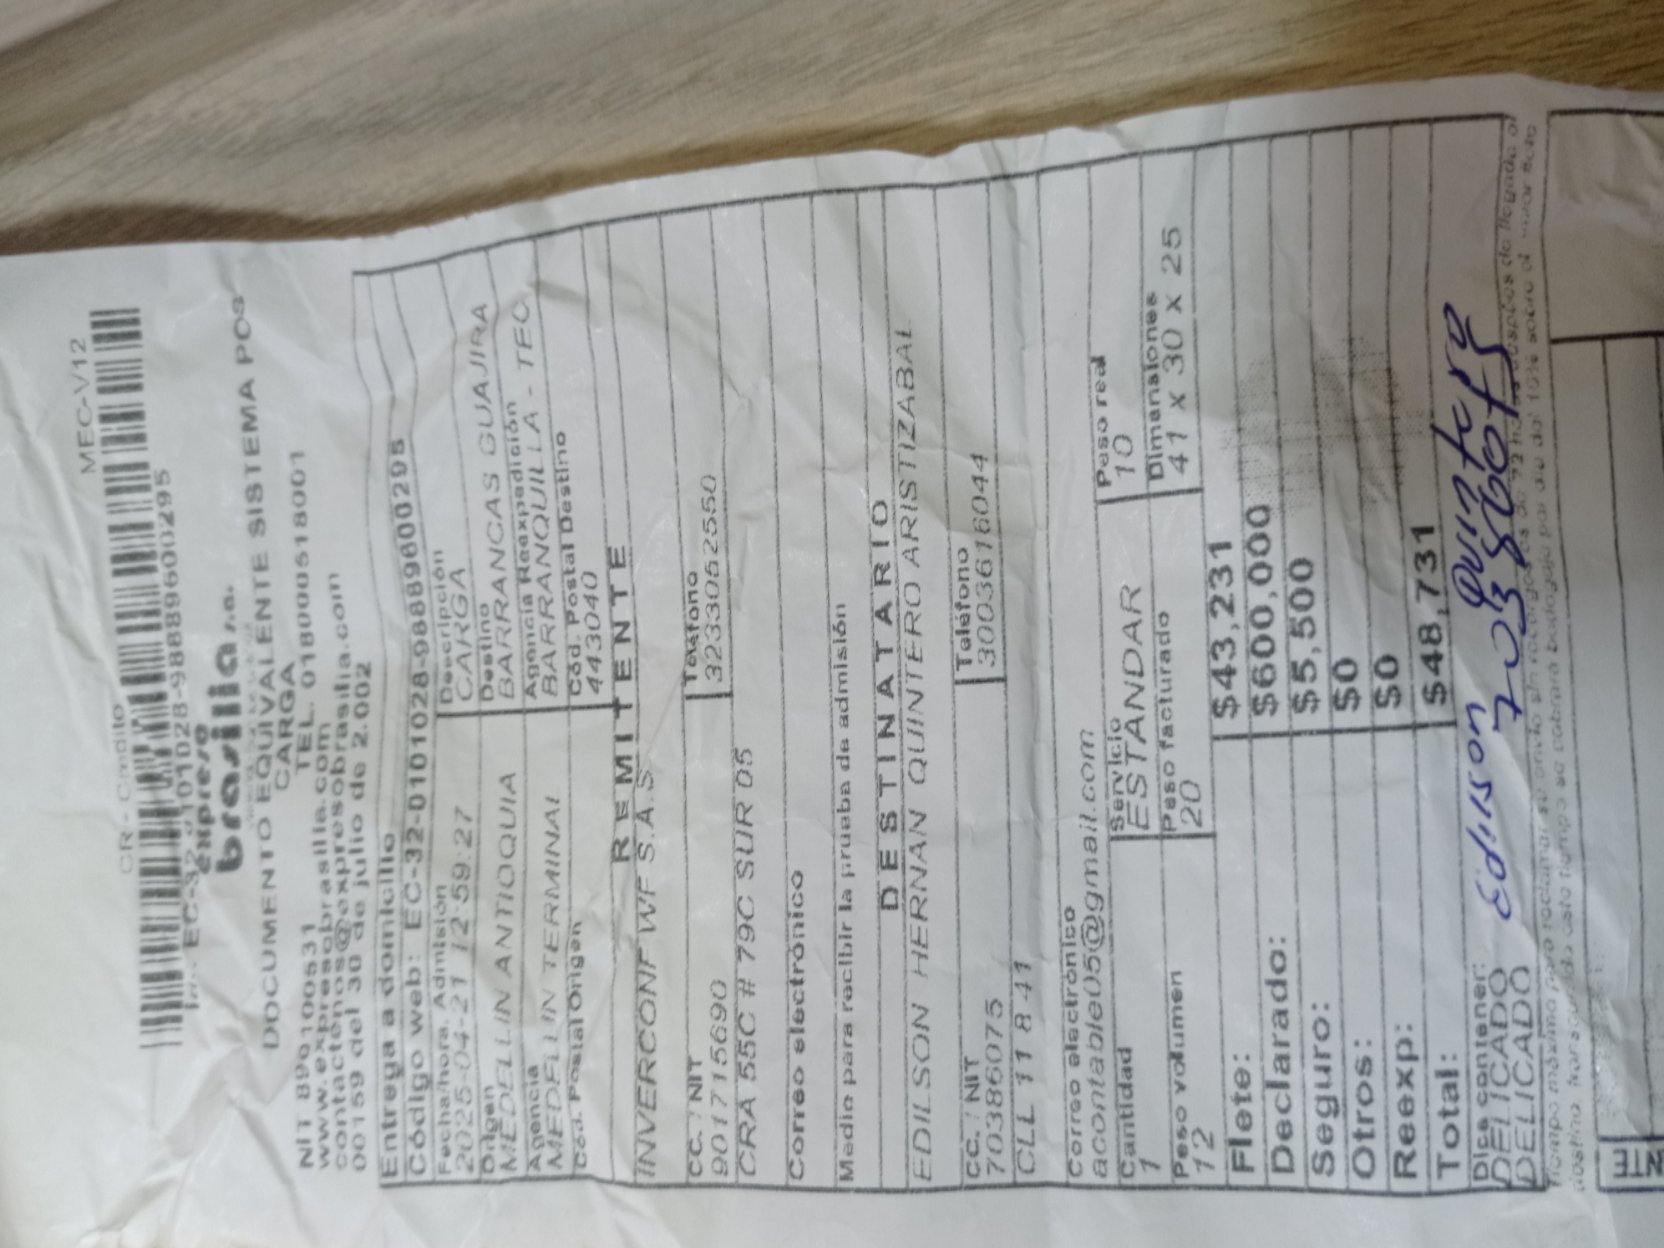 MEC-V12
CR - Crédito
EC-32-0101028-98889600295
expreso
brasilia s.a.
DOCUMENTO EQUIVALENTE SISTEMA POS
CARGA
NIT 890100531 TEL. 018000518001
www.expresobrasilia.com
contactenos@expresobrasilia.com
00159 del 30 de julio de 2.002
Entrega a domicilio
Código web: EC-32-0101028-98889600295
Fecha/hora. Admisión Descripción
2025-04-21 12:59:27 CARGA
Origen Destino
MEDELLIN ANTIOQUIA BARRANCAS GUAJIRA
Agencia Agencia Reexpedición
MEDELLIN TERMINAL BARRANQUILLA - TEC
Cód. Postal Origen Cód. Postal Destino
443040
REMITENTE
INVERCONF WF S.A.S
CC. / NIT Teléfono
901715690 3233052550
CRA 55C # 79C SUR 05
Correo electrónico
Medio para recibir la prueba de admisión
DESTINATARIO
EDILSON HERNAN QUINTERO ARISTIZABAL
CC. / NIT Teléfono
70386075 3003616044
CLL 11 8 41
Correo electrónico
acontable05@gmail.com
Cantidad Servicio Peso real
1 ESTANDAR 10
Peso volumen Peso facturado Dimensiones
12 20 41 X 30 X 25
Flete: $43,231
Declarado: $600,000
Seguro: $5,500
Otros: $0
Reexp: $0
Total: $48,731
Dice contener:
DELICADO
DELICADO
Edilson Quintero